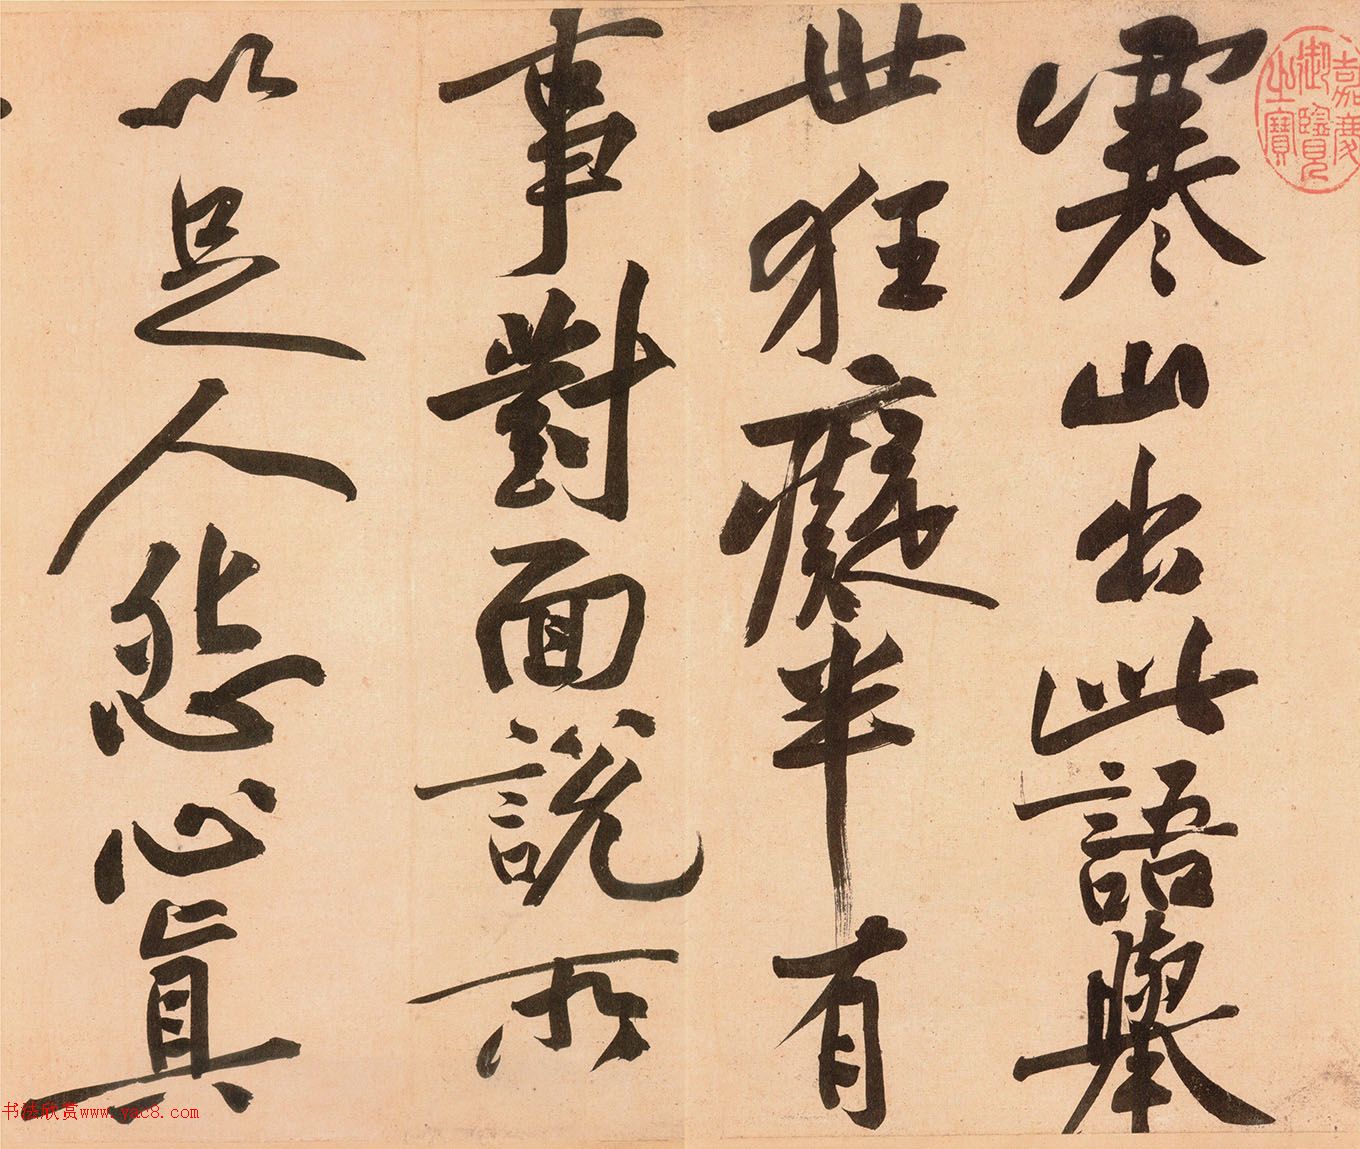 寒山出此語舉
世狂癡半有
事對面說所
以足人悲心真
嘉慶御覽之寶
书法欣赏www.yac8.com